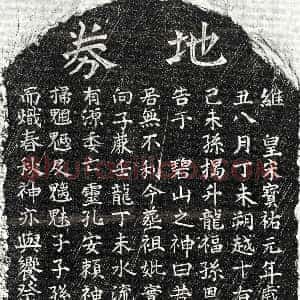 地券
維皇宋寶祐元年歲
丑八月丁未朔越十有
己未孫揭斗龍福孫恩
告于碧山之神曰葬
若無不利今奉祖妣實
向子癸壬龍丁未水流
有源委亡靈孔安賴神
掃魈魎及魑魅子子孫
而熾春秋神亦與饗